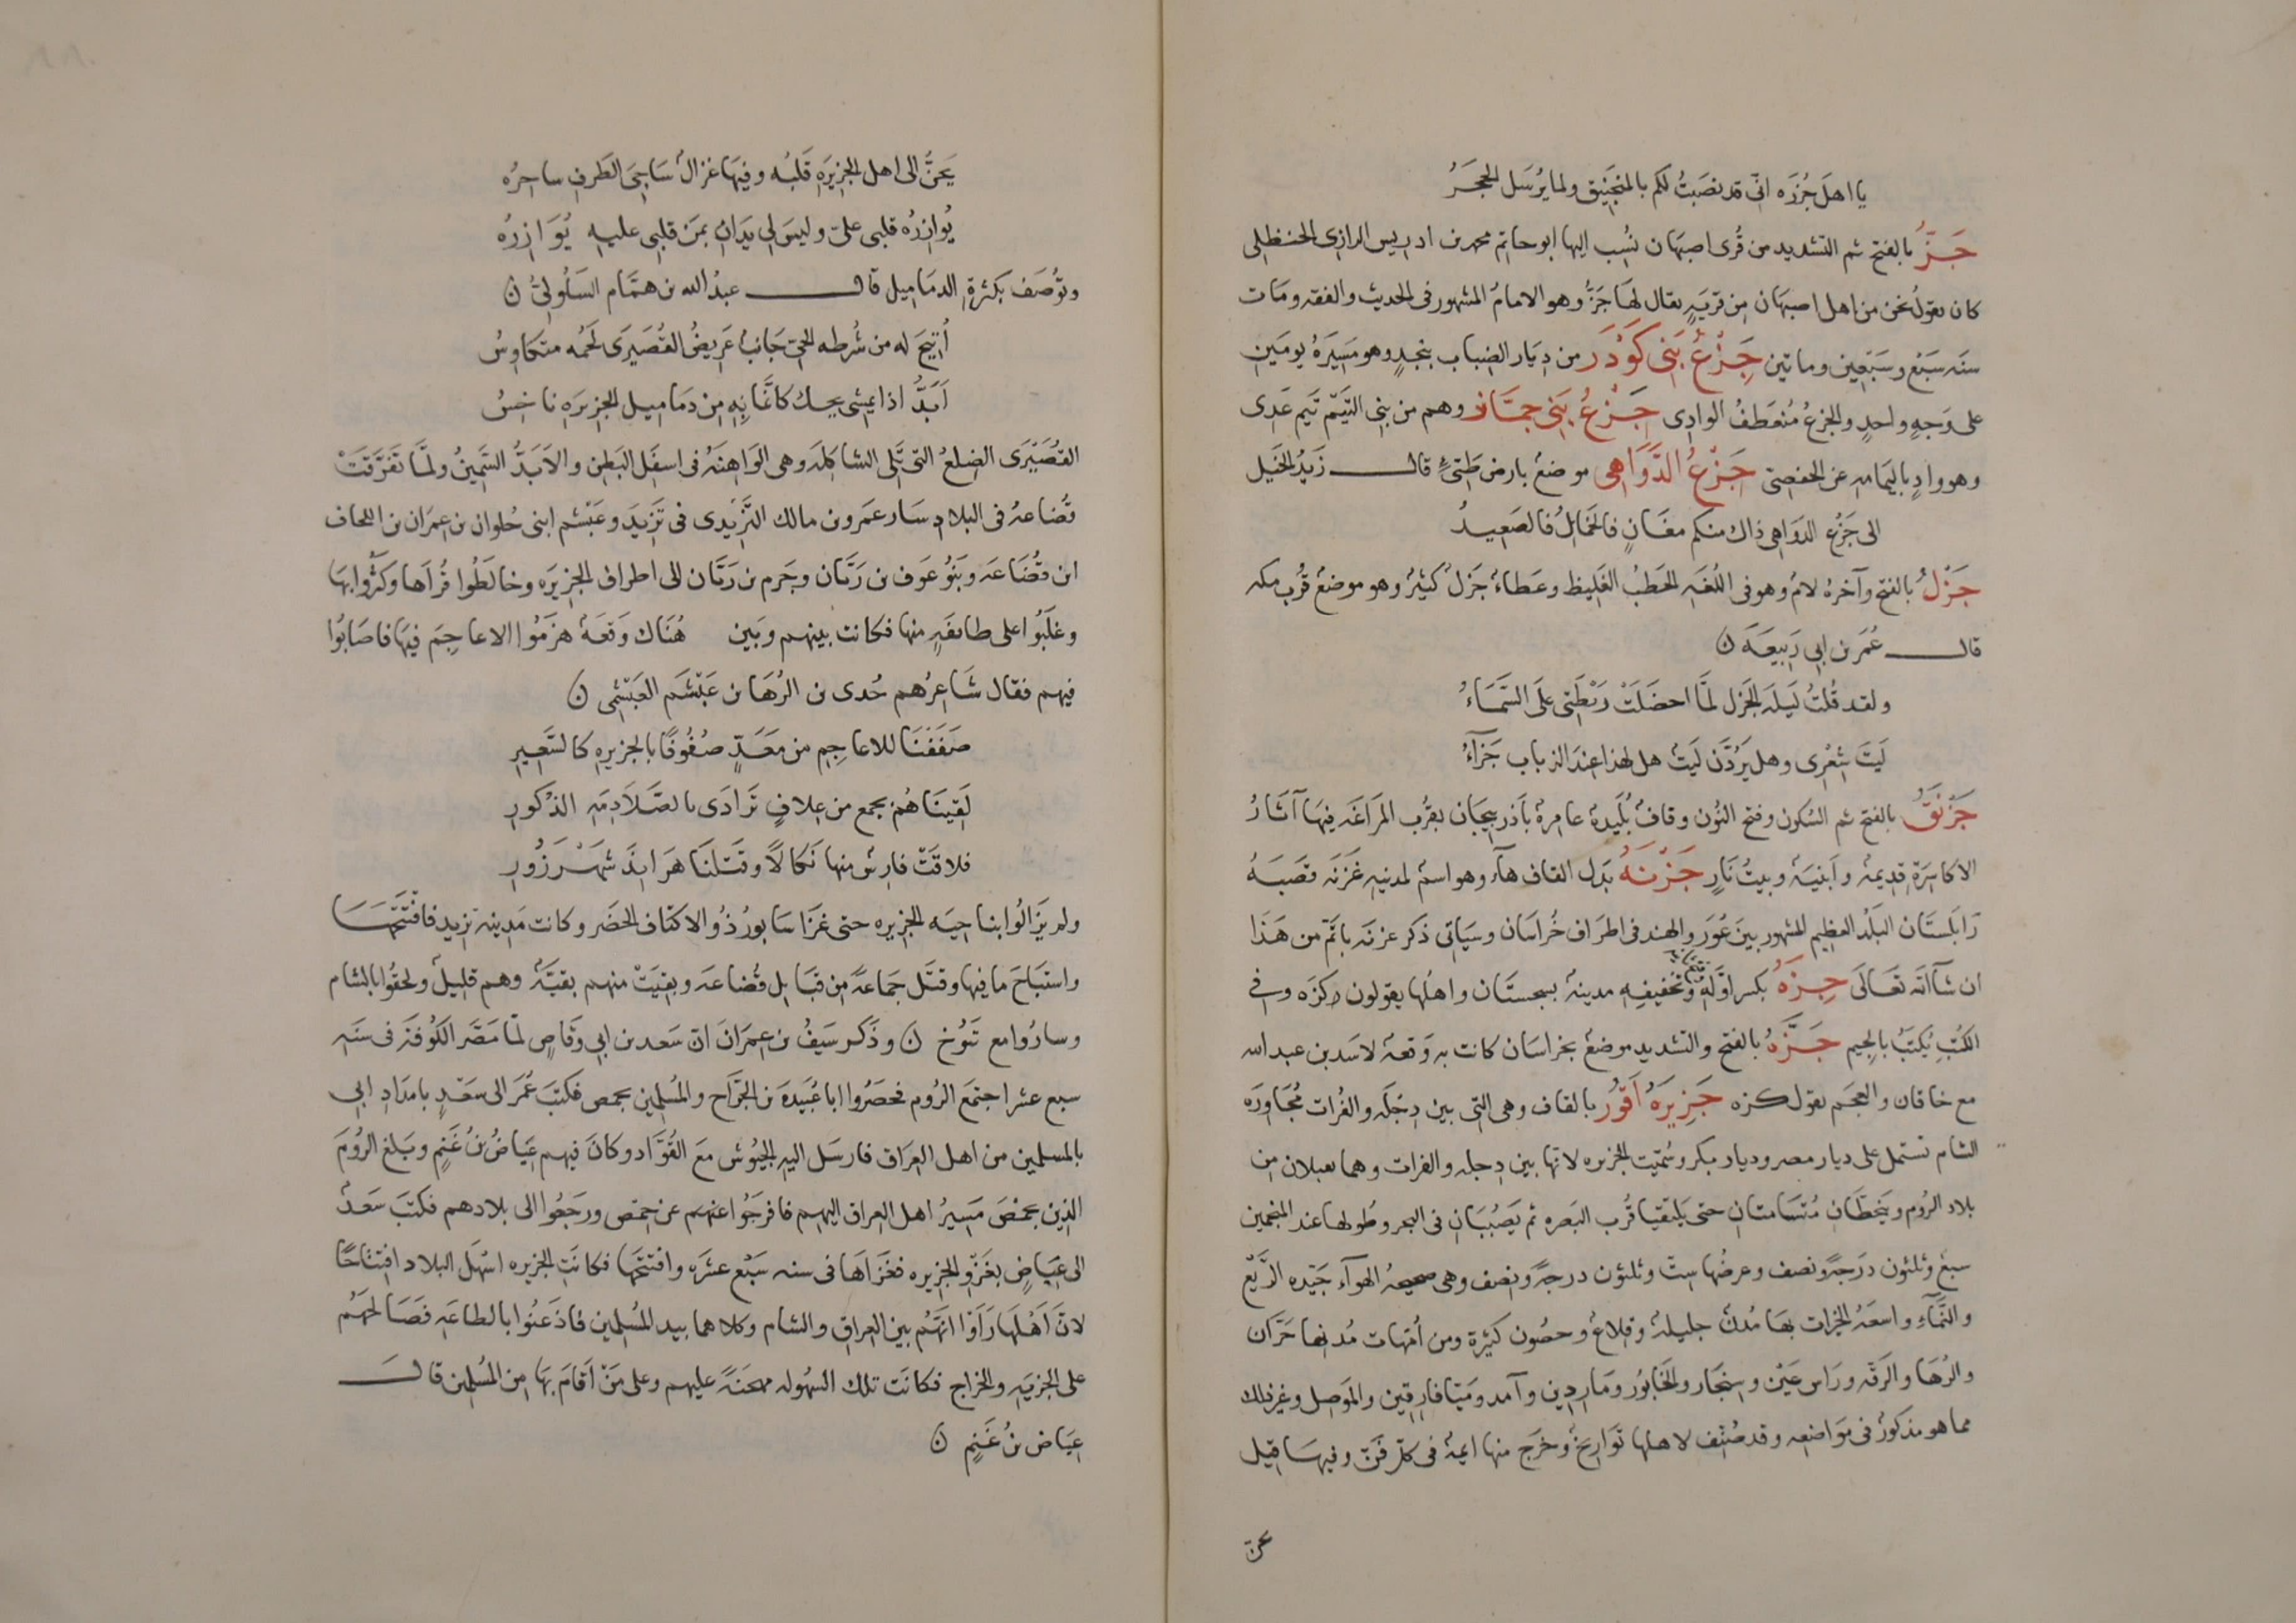 يا اهلَ جُزرَه انّى قد نصَبتُ لكم بالمنجَنِيق ولما يُرسَل الحجَرُ
جَزُّ بالفتح ثم التشديد من قُرى اصبهان نُسِب اليها ابو حاتم محمد بن ادريس الرازى الحنظلى
كان يقولُ نحن من اهل اصبهان مِن قريةٍ يقال لهَا جَزُّ وهو الامامُ المشهور فى الحديث والفقه ومَات
سنه سَبع وسَبعِين وماتين جِزْعُ بَنِى كَوْدَر من دِيَار الضباب بنجدٍ وهو مَسِيَرَةُ يومَين
على وَجهٍ واحدٍ والجزعُ مُنعَطفُ الوادِى جَزْعُ بَنِى حمَّاز وهم من بنِى التَيّم تَيم عَدى
وهو وادٍ باليَمامه عن الحفصِى جَزْعُ الدَّوَاهِى موضعُ بارض طَىّءٍ قال زَيدُ الخَيل
الى جَزْع الدوَاهِى ذاك منكم مغَانٍ فالخمَائلُ فالصَعِيدُ
جَزْلُ بالفتح وآخرهُ لامٌ وهو فى اللُغَه الحطبُ الغَلِيظ وعَطاءٌ جَزلٌ كثيرٌ وهو موضعٌ قُرب مكه
قال عُمَر بن ابى رَبِيعَه ن
ولقد قُلتُ لَيلَه الجزل لمَّا احضَلَتْ رَيْطَتِى علَى السَّمَاءُ
لَيتَ شِعْرِى وهل يَرُدَّن لَيتٌ هل لهذا عندَ الرباب جَزَآءُ
جَزْنَقُ بالفتح ثم السُكون وفتح النُون وقافٌ بُلَيدهٌ عامرهٌ بآذربيجَان بقرُب المَرَاغَه فِيهَا آثَارُ
الاكاسِرَةِ قدِيمهٌ وآبنيَهٌ وبيتُ نَارٍ جَزْنَهُ بَدَل القاف هآء وهو اسمٌ لمدينهِ غَزنَه قصَبَهُ
زَابُلستَان البَلَد العظِيم المشهور بينَ غُوَر والهند فى اطراف خُراسَان وسيَاتى ذكر غزنَه باتمّ من هَذَا
ان شآاللهُ تعَالَى جِزَهُ بكسر اوّلهِ وتخفيفِه مدينهٌ بسجستَان واهلُها يقولون كزَه وفى
الكتُبِ تُكتَبُ بالجِيم جَزَّهُ بالفتح والتشديد موضعٌ بخراسَان كانت به وَقعهٌ لاسَد بن عبد الله
مع خاقان والعجَم يقول كزه جَزِيرَهُ اَقُورَ بالقاف وهى التى بين دِجلَه والفُرات مُجَاورَه
الشام تشتمل على ديار مصر وديار بكر وسُمّيت الجزيره لانها بين دجله والفرات وهما يقبلان مِن
بلاد الرُوم ويَنحَطَّانِ مُتَسَامتَانِ حتى يَلتقيا قُرب البَصره ثم يَصُبَّانِ فى البحر وطُولها عند المنجمين
سبعٌ وثلثون دَرَجهً ونصف وعرضُها ستٌّ وثلثون درجهً ونصف وهى صحيحهُ الهوآء جَيّده الرَّيع
والنَّمآءِ واسعَهُ الخيرات بهَا مُدنٌ جليلهٌ وقلاعٌ وحصُون كثيرة ومن اُمّهات مُدنها حَرَّان
والرُهَا والرقّه ورَاس عَيْن وسنجَار والخابُور ومَارِدِين وآمد ومَيّافارقين والمَوصِل وغيرذلك
مما هو مذكورٌ فى موَاضعه وقد صُنّف لاهلها تَوَارِيخٌ وخرَج منها ايمهٌ فى كلّ فَنّ وفيهَا قيل
يحنّ
يَحنُّ الى اهل الجزِيرَهِ قَلبُه وفيهَا غزالٌ سَاجِىَ الطَرفِ ساحرُه
يُوازرُه قلبى علىّ وليسَ لى يَدَانِ بمَن قلبِى عليهِ يُوَازِرُه
وتُوصَف بكثرةِ الدمَامِيل قال عبدُ الله بن همَّام السَلُولِىُّ ن
اُتِيحَ له من شُرطه الحىّ جَانبٌ عَرِيضُ القُصَيرَى لحمُه متكاوِسُ
اَبَدُّ اذا يمشى يحيك كانَّمَا بِهِ مِن دمَامِيل الجزيرَه ناخِسُ
القُصَيْرَى الضِلعُ التى تَلِى الشاكله وهى الوَاهنَهُ فى اسفَل البَطِن والاَبَدُّ السَّمِينُ ولمَّا تفَرَّقَتْ
قُضَاعهُ فى البلادِ سَار عَمرو بن مالك التَّزِيدى فى تَزِيدَ وعَبْشم ابنى حُلوان بن عِمرَان بن الحاف
ابن قُضَاعَه وبَنُو عَوف بن رَبَّان وجَرم بن رَبَّان الى اطراف الجزِيرَه وخالَطُوا قُرَاهَا وكثُروا بهَا
وغَلَبُوا على طائفَهٍ منها فكانت بينهم وبَين هُنَاك وَقعَهٌ هزَمُوا الاعاجِمَ فيهَا فاصَابُوا
فيهم فقال شَاعِرُهم حُدى بن الرُهَا بن عَبْشَم العَبْشمِى ن
صَفَفنَا للاعاجِمِ من مَعَدٍّ صُفُوفًا بالجزيرهِ كالسَّعِيرِ
لَقِينَاهُمْ بجمع من عِلافٍ تَرَادَى بالصَّلَادِمَهِ الذكورِ
فلاقَتْ فارِسٌ منها نَكَالاً وقتَلنَا هَرَابِذَ شَهْرَزُورِ
ولم يَزَالُوا بناحيَه الجزيره حتى غزَا سَابورُ ذُو الاكتَاف الحَضَر وكانت مَدِينه تزيد فافتتَحهَا
واستبَاحَ مافيها وقتَل جمَاعهً مِن قبَايل قُضاعَه وبقِيَتْ منهم بقيَّهٌ وهم قلِيلٌ ولحقُوا بالشام
وسارُوا مع تَنُوخ ن وذَكر سَيفُ بن عِمرَانَ انّ سَعد بن ابى وقَاصٍ لمّا مَصَّر الكُوفَه فى سنَه
سبع عشر اجتمَع الرُوم فحصَرُوا ابا عُبَيدهَ بن الجَرّاح والمُسلِمِين بحمص فكتبَ عُمَر الى سَعْدٍ بامدَادِ ابى
بالمسلمين من اهل العِرَاق فارسَل اليهِ الجيُوش مَعَ القُوَّاد وكانَ فيهم عيَاضُ بنُ غَنمٍ وبَلغ الرُومَ
الذِين بحمْصَ مَسِيرُ اهل العراق اليهم فافرجُوا عنهم عن حِمص ورجَعُوا الى بلادهم فكتبَ سَعدٌ
الى عيَاضٍ بغَزْو الجزيره فغزَاهَا فى سنه سَبْع عشَره وافتتحَها فكانَتِ الجزيره اسْهَل البلاد افتتَاحًا
لانَّ اَهْلَهَا رَاَوْا انّهُم بين العِراق والشام وكلاهما بيد المُسلِمين فاذعَنُوا بالطاعَه فصَالحهُم
على الجِزيَه والخراج فكانَت تلك السهُوله محنَهً عليهم وعلى مَنْ اقامَ بهَا مِن المُسلمِين قال
عيَاض بنُ غَنمٍ ن